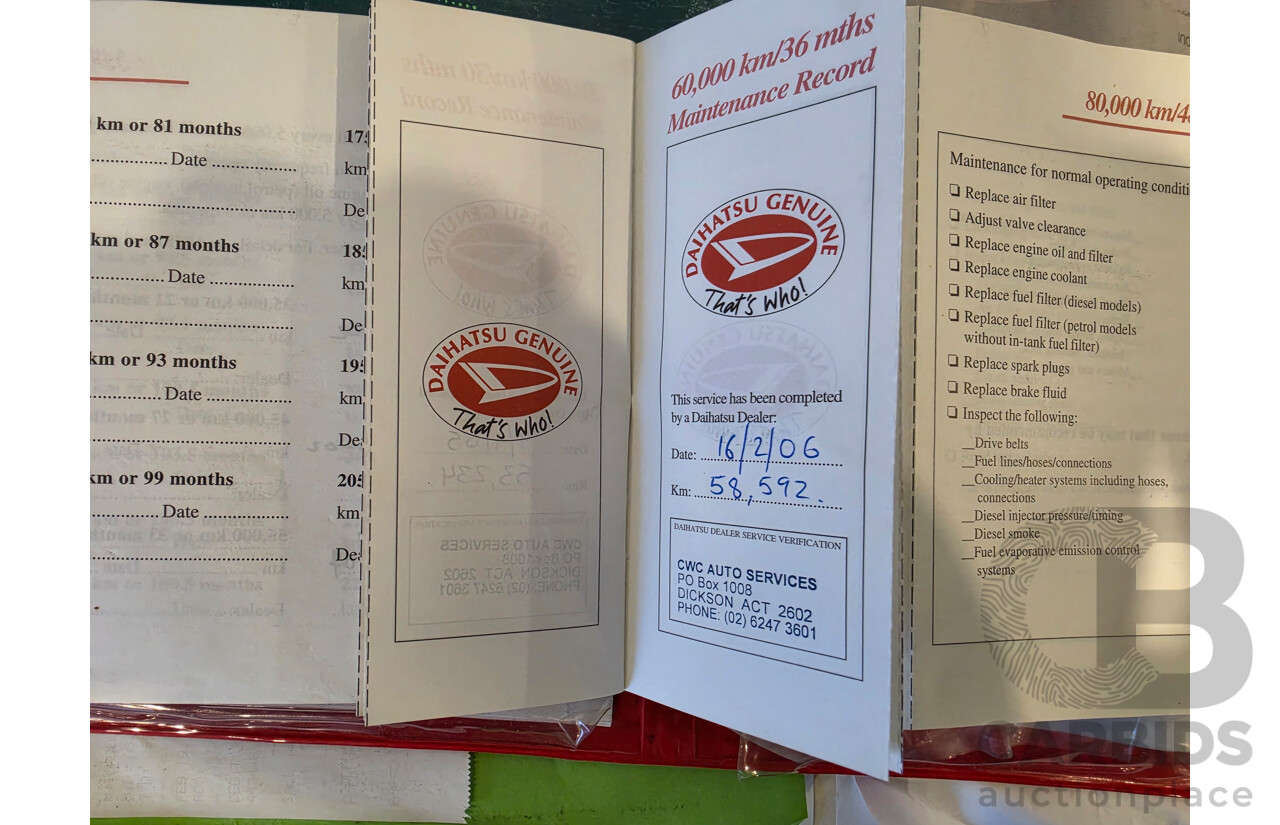 km or 81 months
Date
km
km or 87 months
185
Date
km
De
km or 93 months
195
Date
km
De
km or 99 months
205
Date
km
De
DAIHATSU GENUINE
That's Who!
60,000 km/36 mths
Maintenance Record
DAIHATSU GENUINE
That's Who!
This service has been completed
by a Daihatsu Dealer:
Date: 16/2/06
Km: 58,592.
DAIHATSU DEALER SERVICE VERIFICATION
CWC AUTO SERVICES
PO Box 1008
DICKSON ACT 2602
PHONE: (02) 6247 3601
80,000 km/4
Maintenance for normal operating conditi
❏ Replace air filter
❏ Adjust valve clearance
❏ Replace engine oil and filter
❏ Replace engine coolant
❏ Replace fuel filter (diesel models)
❏ Replace fuel filter (petrol models
without in-tank fuel filter)
❏ Replace spark plugs
❏ Replace brake fluid
❏ Inspect the following:
__Drive belts
__Fuel lines/hoses/connections
__Cooling/heater systems including hoses,
connections
__Diesel injector pressure/timing
__Diesel smoke
__Fuel evaporative emission control
systems
CARFIDS
auctionplace